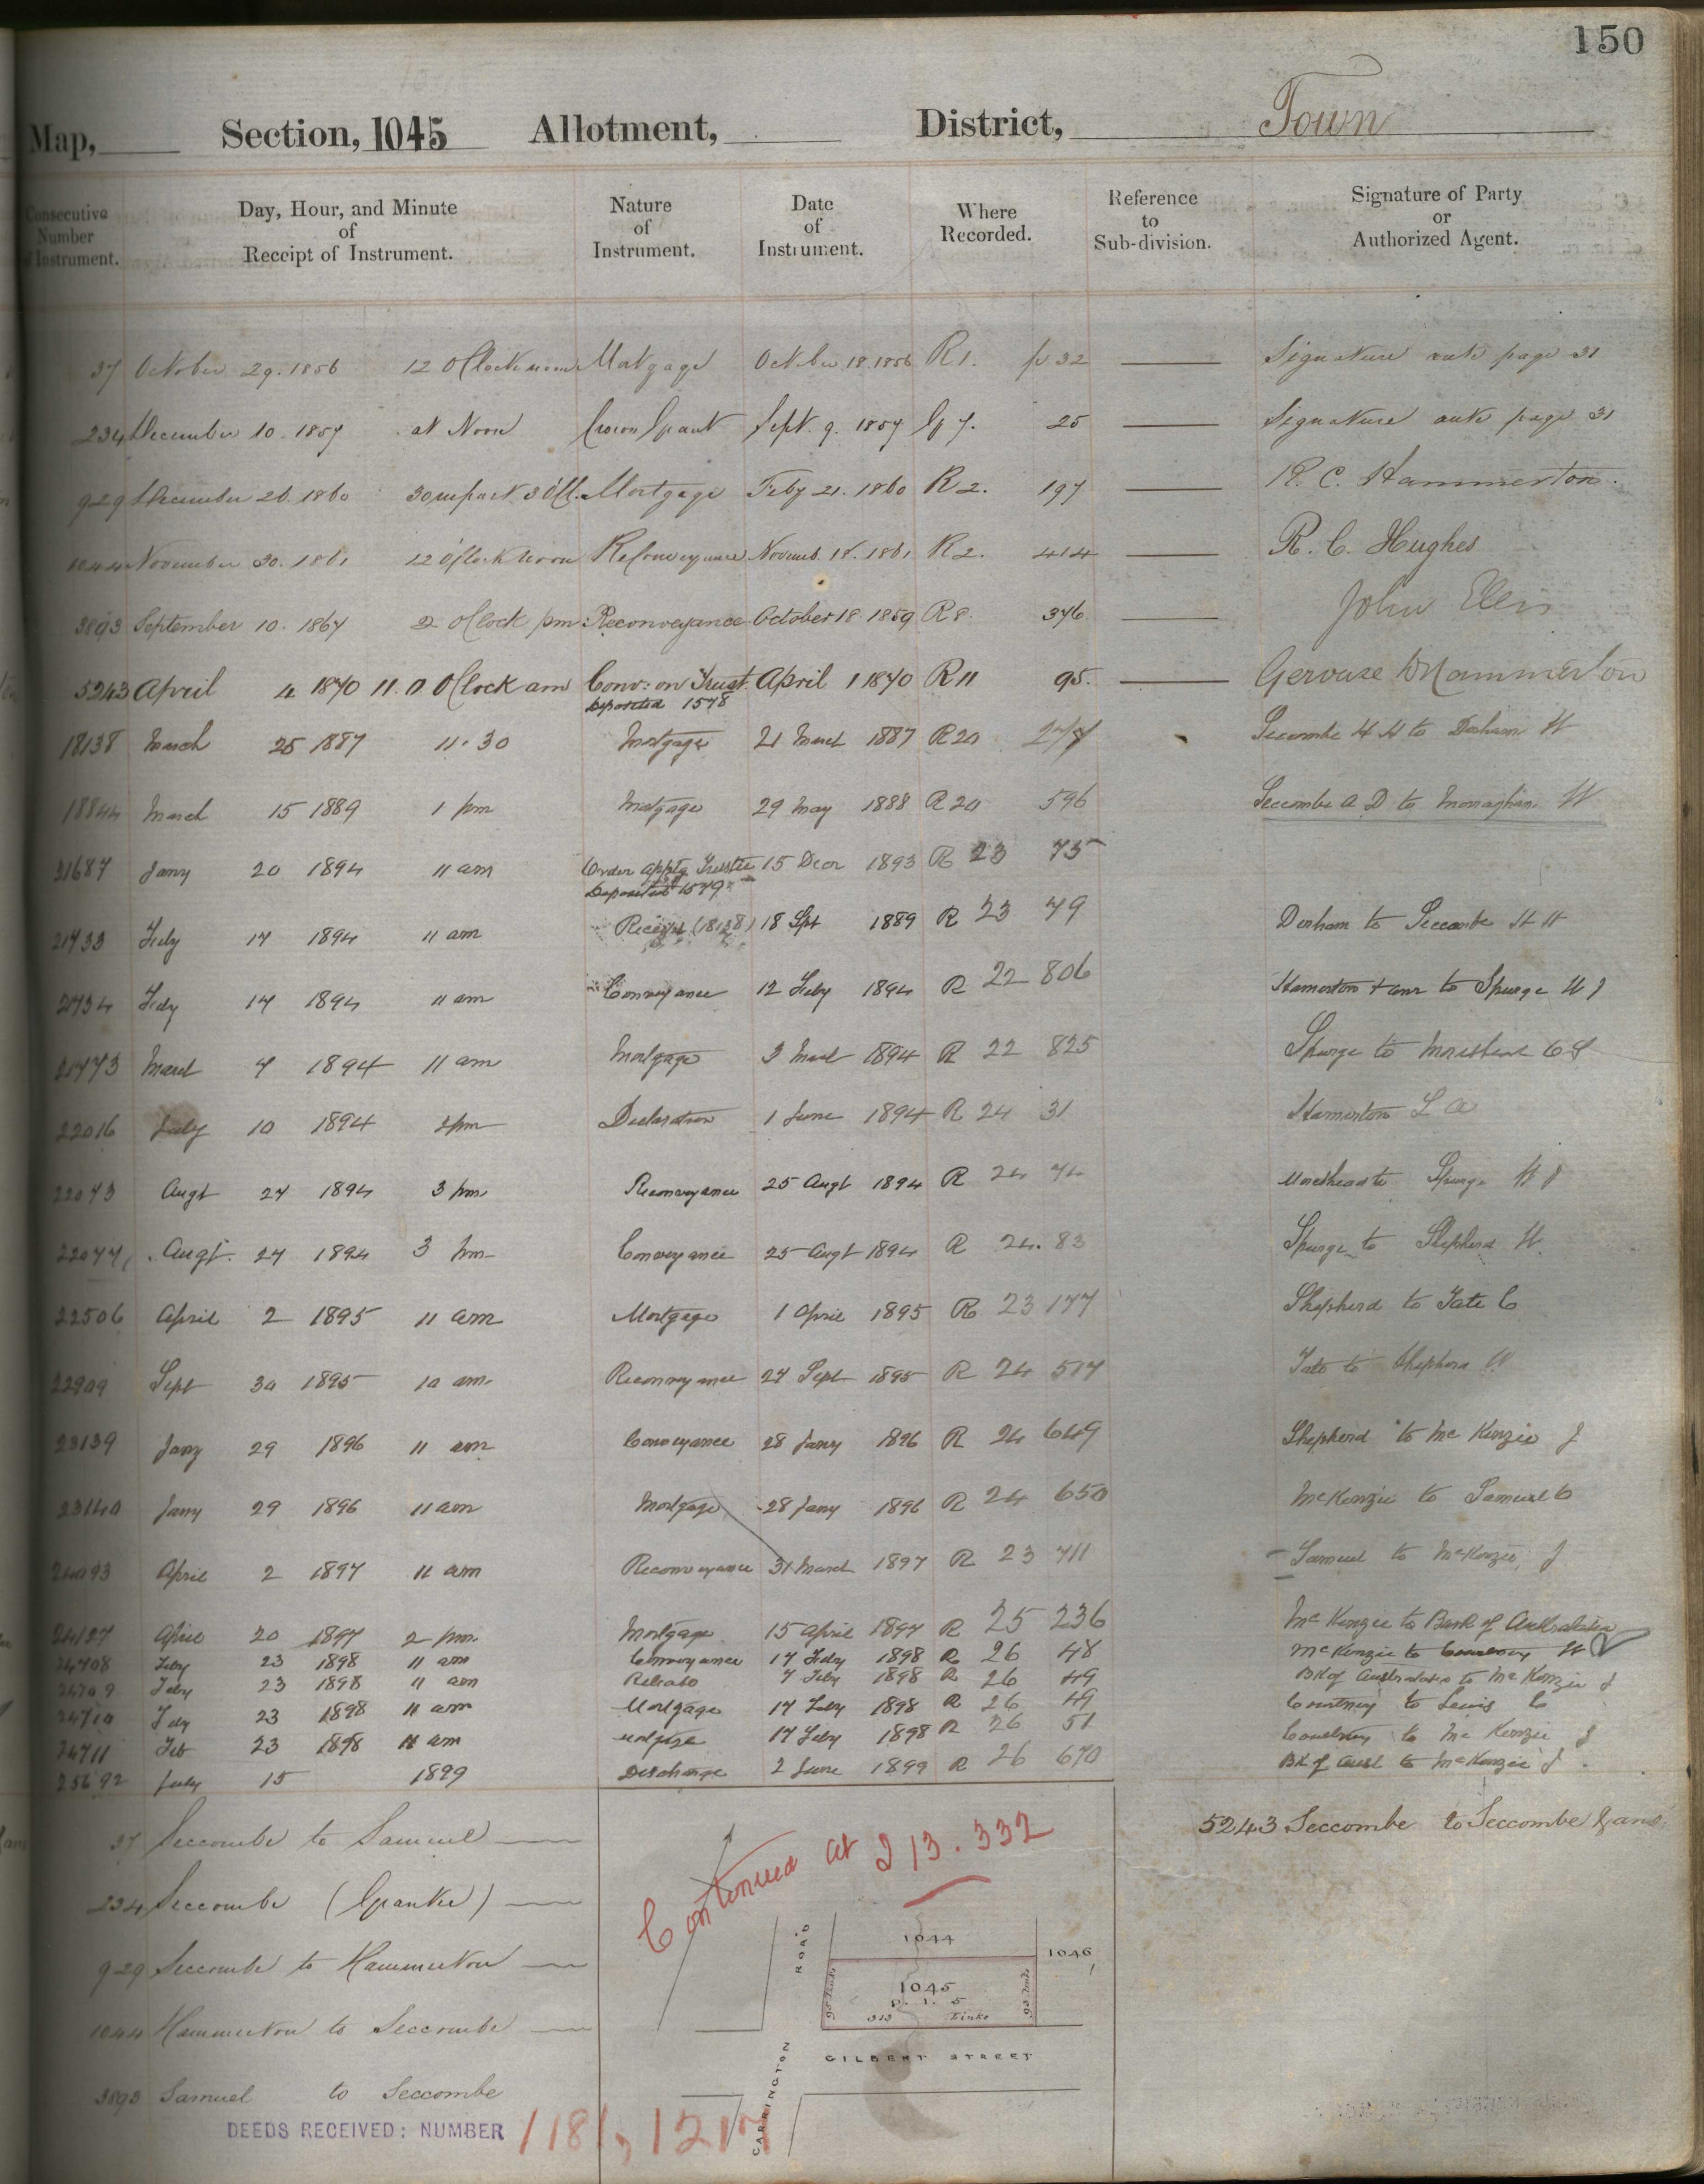 150
Map, Section, 1045 Allotment, District, Town
Consecutive Number of Instrument.
Day, Hour, and Minute of Receipt of Instrument.
Nature of Instrument.
Date of Instrument.
Where Recorded.
Reference to Sub-division.
Signature of Party or Authorized Agent.
37 October 29. 1856 12 OClock noon Mortgage October 18. 1856 R 1. p 32 Signature ante page 31
234 December 10. 1857 at Noon Crown Grant Sept. 9. 1857 G 7. 25 Signature ante page 31
929 December 26. 1860 30 m past 3 Mortgage Feby 21. 1860 R 2. 197 R. C. Hammerton.
1044 November 30. 1861 12 O'Clock Noon Reconveyance Novemb. 18. 1861 R 2. 414 R. C. Hughes
3893 September 10. 1867 2 OClock pm Reconveyance October 18 1859 R 8. 376 John Ellis
5243 April 4 1870 11.0 OClock am Conv: on Trust. April 1 1870 R 11 95. Gervase D Hammerton
Deposited 1578
18138 March 25 1887 11.30 Mortgage 21 March 1887 R 20 277 Seccombe H H to Denham W
18844 March 15 1889 1 pm Mortgage 29 May 1888 R 20 596 Seccombe A D to Monaghan W
21687 Jany 20 1894 11 am Order apptg Trustee 15 Decr 1893 R 23 75
Deposited 1579
21733 Feby 17 1894 11 am Receipt (18138) 18 Spt 1889 R 23 79 Denham to Seccombe H H
21734 Feby 17 1894 11 am Conveyance 12 Feby 1894 R 22 806 Hamerton + anr to Spurge W J
21773 March 7 1894 11 am Mortgage 3 March 1894 R 22 825 Spurge to Morshead
22016 July 10 1894 2 pm Declaration 1 June 1894 R 24 31 Hamerton L A
22073 Augt 27 1894 3 pm Reconveyance 25 Augt 1894 R 24 74 Morshead to Spurge W J
22074 Augt. 27 1894 3 pm Conveyance 25 Augt 1894 R 24. 83 Spurge to Shepherd W.
22506 April 2 1895 11 am Mortgage 1 April 1895 R 23 177 Shepherd to Tate C
22909 Sept 30 1895 10 am Reconveyance 27 Sept 1895 R 24 517 Tate to Shepherd W
23139 Jany 29 1896 11 am Conveyance 28 Jany 1896 R 24 649 Shepherd to McKenzie J
23140 Jany 29 1896 11 am Mortgage 28 Jany 1896 R 24 650 McKenzie to Samuel C
24093 April 2 1897 11 am Reconveyance 31 March 1897 R 23 711 Samuel to McKenzie, J
24127 April 20 1897 2 pm Mortgage 15 April 1897 R 25 236 McKenzie to Bank of Australasia
24708 Feby 23 1898 11 am Conveyance 17 Feby 1898 R 26 48 McKenzie to Courtney W
24709 Feby 23 1898 11 am Release 7 Feby 1898 R 26 49 Bk of Australasia to McKenzie J
24710 Feby 23 1898 11 am Mortgage 17 Feby 1898 R 26 49 Courtney to Lewis C
24711 Feb 23 1898 11 am Mortgage 17 Feby 1898 R 26 51 Courtney to McKenzie J
25692 July 15 1899 Discharge 2 June 1899 R 26 670 Bk of Aust to McKenzie J.
37 Seccombe to Samuel
234 Seccombe (Grantee)
929 Seccombe to Hammerton
1044 Hammerton to Seccombe
3893 Samuel to Seccombe
5243 Seccombe to Seccombe & anr
DEEDS RECEIVED: NUMBER 1181, 1217
Continued at 213. 332
ROAD
1044
1046
1045
0. 1. 5
95 links
313 Links
93 links
GILBERT STREET
CARRINGTON